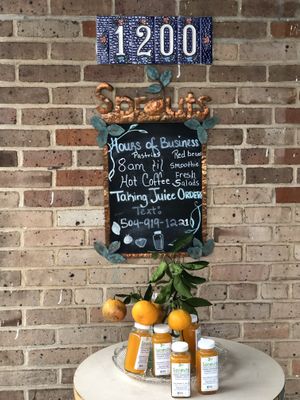 1200
Sprouts
Hours of Business
Pastries Red bean
8am til Smoothie
Hot Coffee Fresh Salads
Taking Juice Order
Text:
504-919-1221